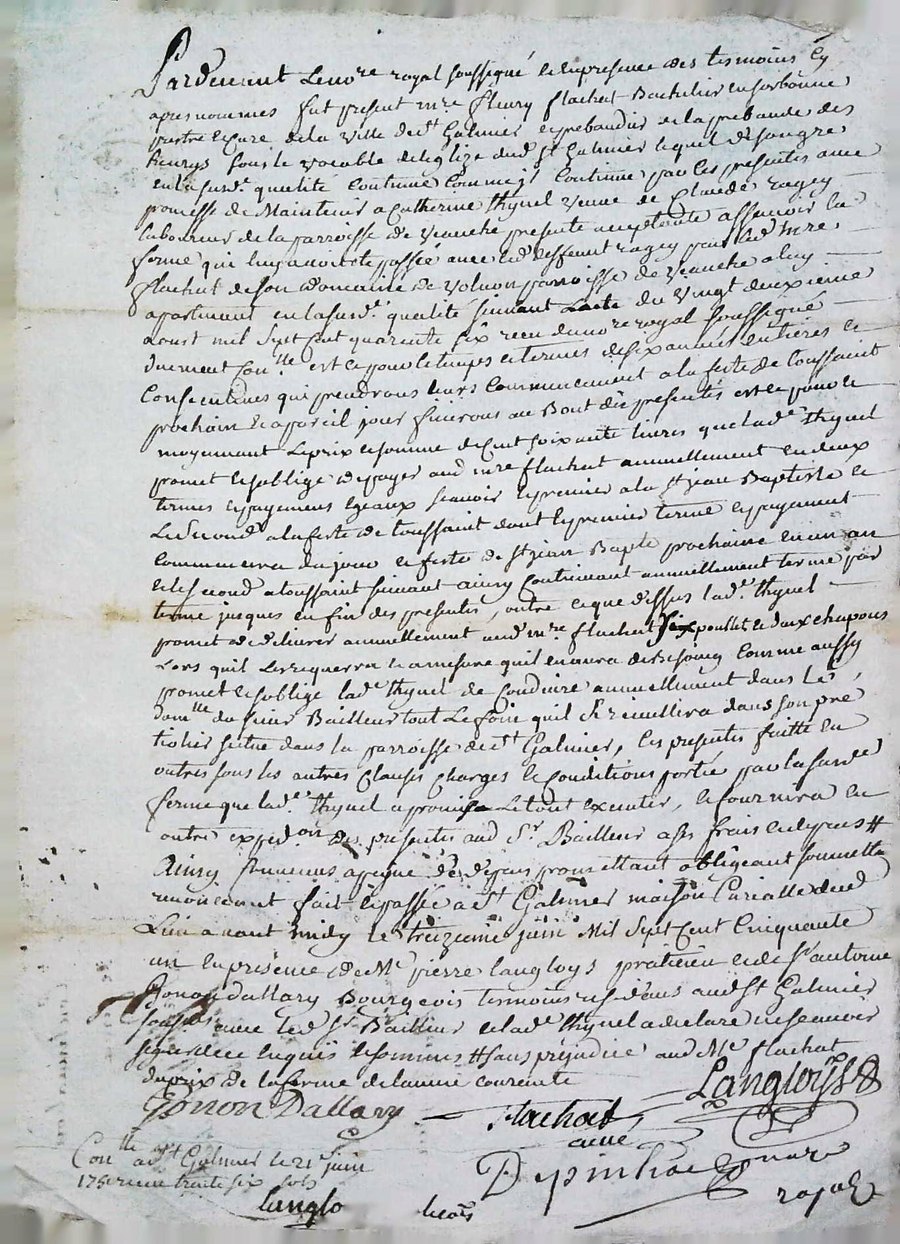 Pardevant Le no.re royal soussigné et en presence des tesmoins Cy
apres nommes fut present m.re fleury flachat Bachelier en sorbonne
prestre et Curé de la Ville de S.t Galmier et prebandier de la prebande des
henrys sous le vocable de leglize dud. S.t Galmier lequel de son gre
en lasusd.e qualité Continue Comme il Continue par Ces presentes avec
promesse de Maintenir a Catherine thynel veuve de Claude ragey
laboureur de la parroisse de veauche presente acceptante assavoir la
ferme qui luy avoit ete passée avec led. deffunt ragey par led. m.re
flachat de son domaine de volvon parroisse de veauche a luy
apartenant en lasusd.e qualité suivant Lacte du vingt deuxieme
aoust mil Sept Cent quarente six receu du no.re royal soussigné
duement Con.lle est ce pour le temps et termes de six années entières et
Consecutives qui prendrons leurs Commencement a la feste de toussaint
prochain et a pareil jour finirons au Bout des presentes est ce pour et
moyennant Le prix et somme de Cent soixante livres que lad.e thynel
promet et soblige de payer aud. m.re flachat annuellement en deux
termes et payemens egeaux scavoir le premier a la S.t jean Baptiste et
Le second a la feste de toussaint dont le premier terme et payement
Commencera du jour et feste de S.t jean Bap.te prochaine en un an
et le second a toussaint suivant ainsy Continuant annuellement terme par
terme jusques en fin des presentes, outre ce que dessus lad.e thynel
promet de delivrer annuellement aud. m.re flachat Six poullets et deux chapons
Lors quil Les requerra et a mesure quil en aura de Besoing Comme aussy
promet et soblige lad.e thynel de Conduire annuellement dans Le
dom.lle du sieur Bailleur tout Le foin quil Se recuellira dans son pre
situé dans la parroisse de S.t Galmier, les presentes faitte en
outres sous les autres Clauses Charges et Conditions portée par lasusd.e
ferme que lad.e thynel a promise Le tout executer, et fournira en
outre exped.on des presentes aud. S.r Bailleur a ses frais et depens #
Ainsy Convenus a peyne de depens promettant obligeant soumetta
renonceant fait et passé a S.t Galmier maison Curialle dud.
Lieu avant midy le treizieme juin Mil Sept Cent Cinquante
un en presence de M.e pierre Langloys praticien et de S.r antoine
Gonon Dallary Bourgeois temoins aud. S.t Galmier
soussignes avec led. S.r Bailleur et lad.e thynel a declaré ne scavoir
signer de ce enquis et sommes # sans prejudice aud. M.e flachat
du prix de la ferme de lannée courante
Gonon Dallary Flachat Langloys
curé
Con.lle a S.t Galmier le 21 juin
1751 receu trente six sols
Depinhac no.re
royal
Langlo